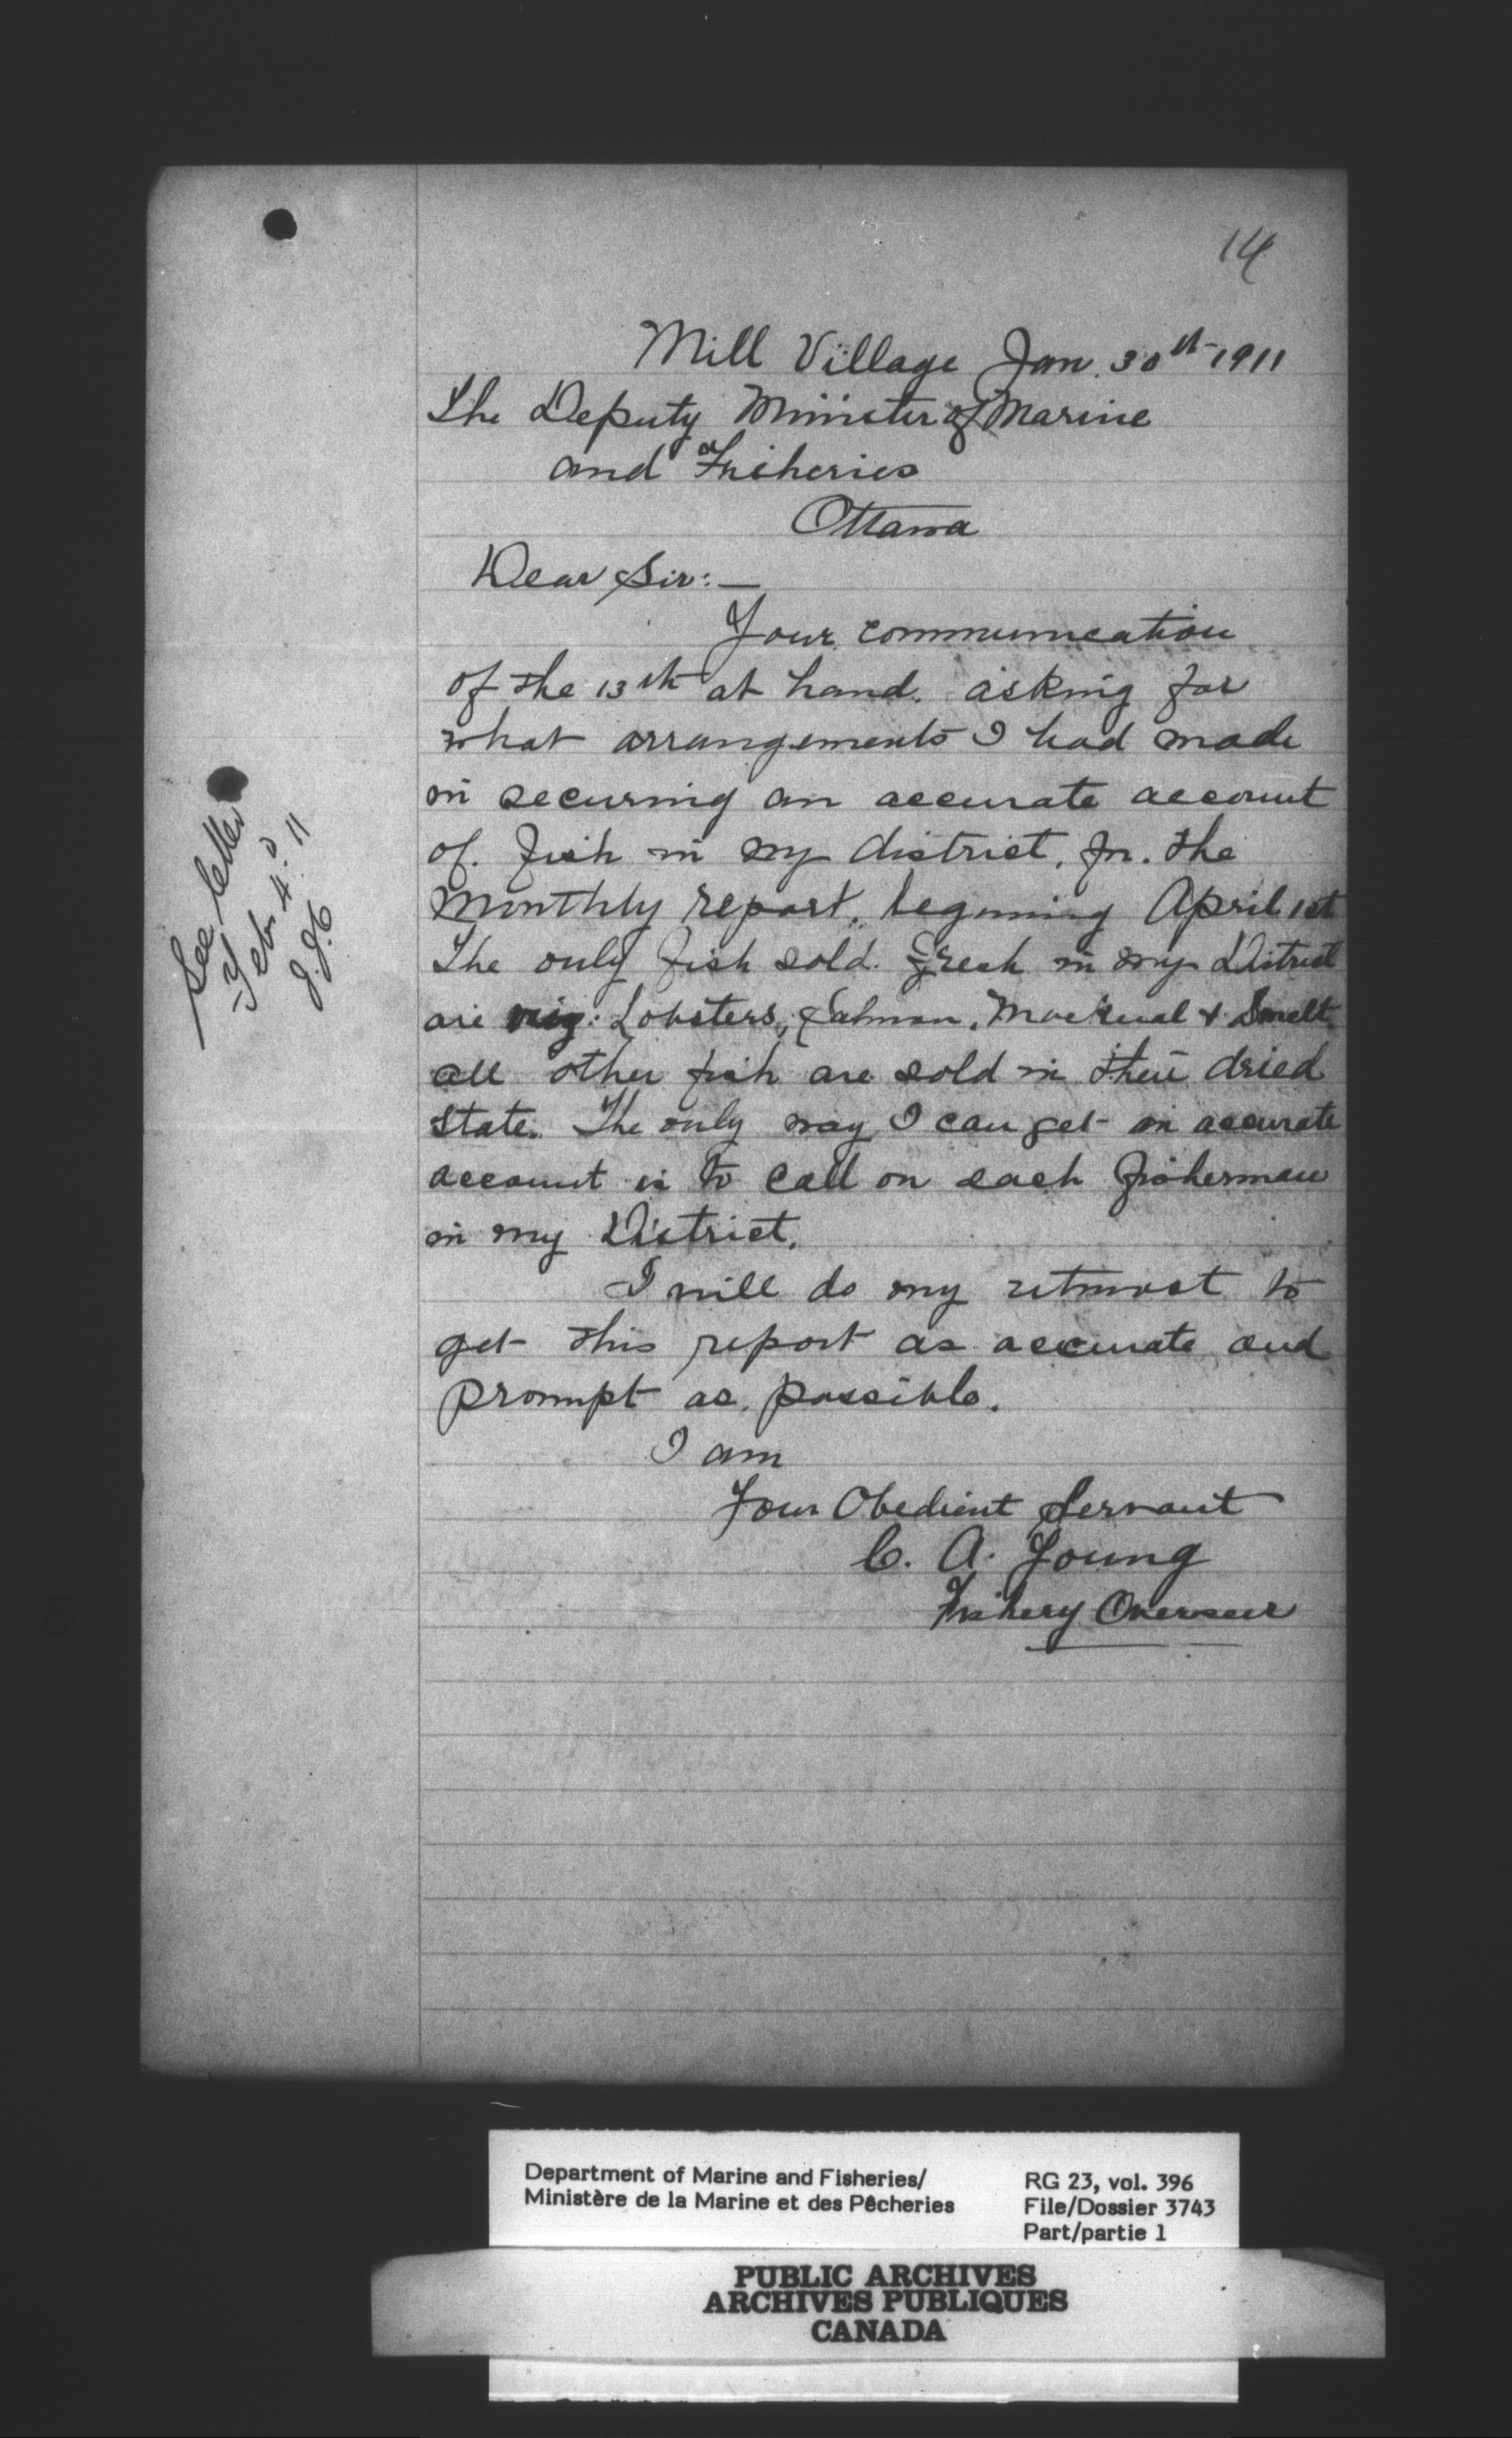 14
Mill Village Jan. 30th 1911
The Deputy Minister of Marine
and Fisheries
Ottawa
Dear Sir:—
Your communication
of the 13th at hand. asking for
what arrangements I had made
in securing an accurate account
of. fish in my district, for. the
Monthly report. begining April 1st
The only fish sold. fresh in my District
are viz: Lobsters, Salmon, Mackeral & Smelt.
all other fish are sold in their dried
state. The only way I can get an accurate
account is to call on each fisherman
in my District.
I will do my utmost to
get this report as accurate and
prompt as possible.
I am
Your Obedient Servant
C. A. Young
Fishery Overseer
See letter
Feb. 4. 11
Department of Marine and Fisheries/
Ministère de la Marine et des Pêcheries
RG 23, vol. 396
File/Dossier 3743
Part/partie 1
PUBLIC ARCHIVES
ARCHIVES PUBLIQUES
CANADA